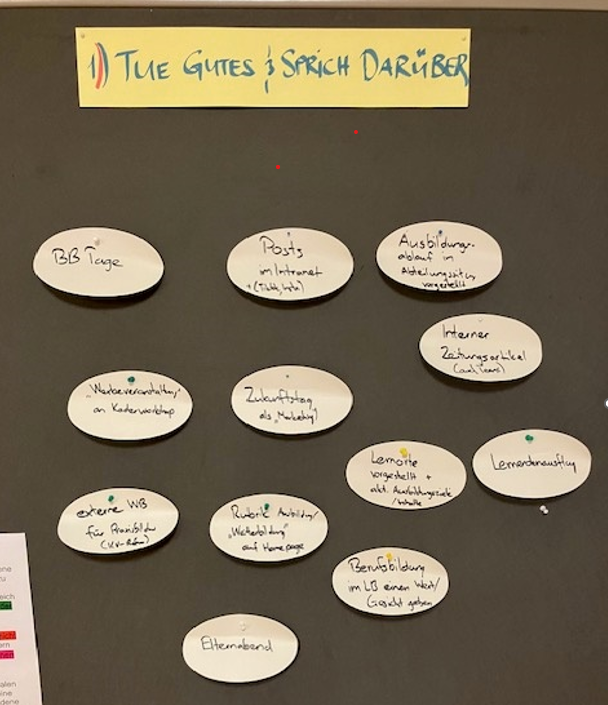 1) TUE GUTES & SPRICH DARÜBER
BB Tage
Posts
im Intranet
+ (TikTok, Insta)
Ausbildungs-
ablauf in
Abteilungssitzg
vorgestellt
Interner
Zeitungsartikel
(auch Teams)
"Werbeveranstaltung"
an Kaderworkshop
Zukunftstag
als "Marketing"
Lernorte
vorgestellt +
akt. Ausbildungsziele
/Inhalte
Lernendenausflug
externe WB
für Praxisbildner
(KV-Reform)
Rubrik Ausbildung/
"Weiterbildung"
auf Homepage
Berufsbildung
im LB einen Wert/
Gesicht geben
Elternabend